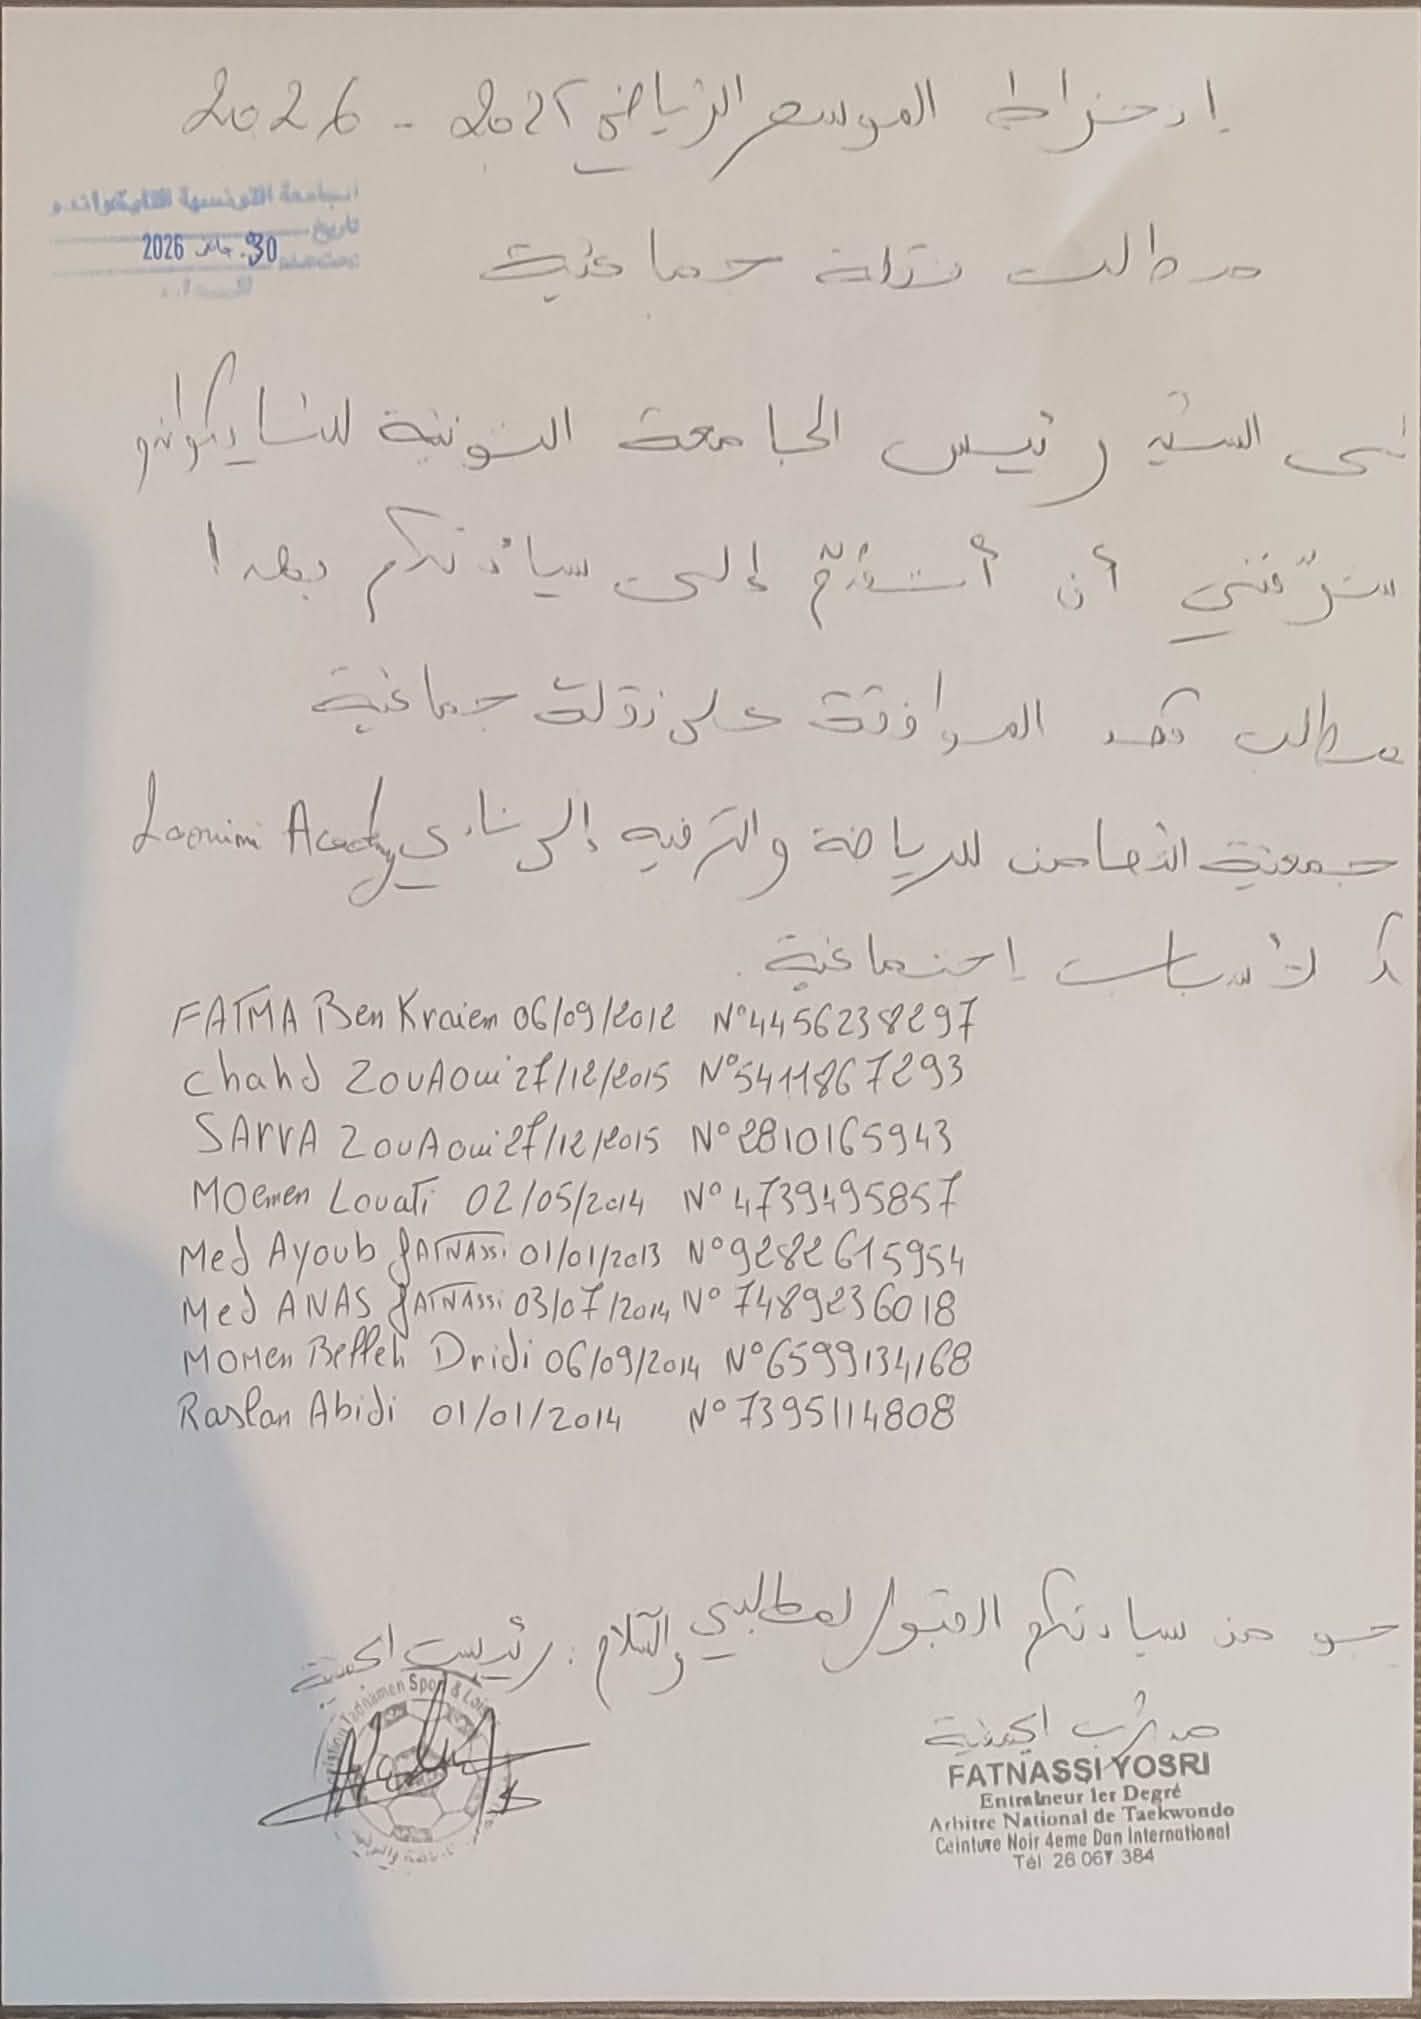 إنخراط الموسم الرياضي 2025 - 2026
الجامعة التونسية للتايكواندو
تاريخ
30 جانفي 2026
مطلب نقلة جماعية
إلى السيد رئيس الجامعة التونسية للتايكواندو
يشرّفني أن أتقدّم إلى سيادتكم بهذا
مطلب قصد الموافقة على نقلة جماعية
جمعية التضامن للرياضة والترفيه إلى نادي Laouini Academy
لأسباب إجتماعية.
FATMA Ben Kraiem 06/09/2012 N°4456238297
Chahd ZOUAOui 27/12/2015 N°5411867293
SARRA ZOUAOui 27/12/2015 N°2810165943
MOemen Louati 02/05/2014 N°4739495857
Med Ayoub FATNASSi 01/01/2013 N°9282615954
Med ANAS FATNASSi 03/07/2014 N°7489236018
MOMEN Dridi 06/09/2014 N°6599134168
Raslan Abidi 01/01/2014 N°7395114808
من سيادتكم القبول لمطلبي والسّلام: رئيس الجمعية
Tadhamen Sport &
مدرّب الجمعية
FATNASSI YOSRI
Entraîneur 1er Degré
Arbitre National de Taekwondo
Ceinture Noir 4eme Dan International
Tél 26 067 384